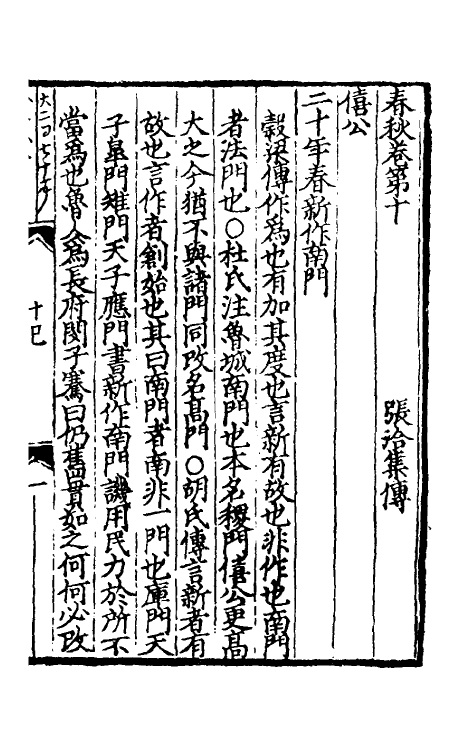 春秋卷第十　張洽集傳
僖公
二十年春新作南門
穀梁傳作爲也有加其度也言新有故也非作也南門
者法門也○杜氏注魯城南門也本名稷門僖公更高
大之今猶不與諸門同改名高門○胡氏傳言新者有
故也言作者創始也其曰南門者南非一門也庫門天
子皐門雉門天子應門書新作南門譏用民力於所不
當爲也魯人爲長府閔子騫曰仍舊貫如之何何必改
十巳
一